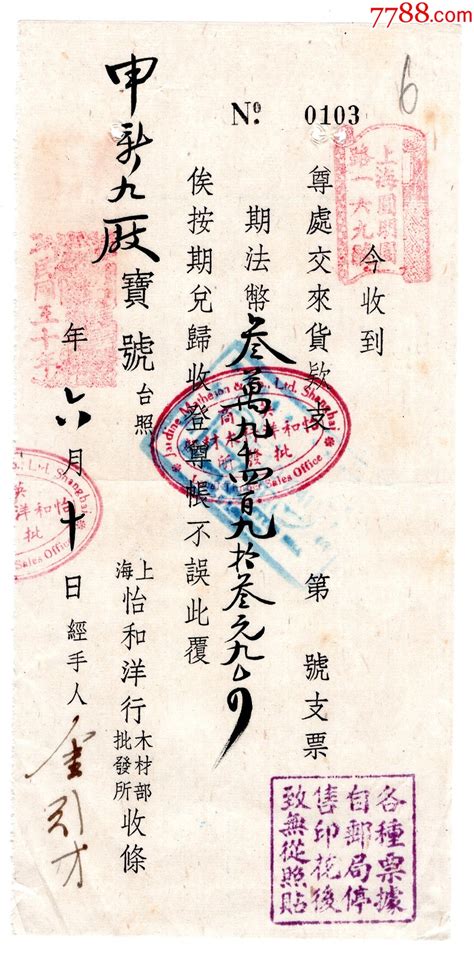 7788.com
6
Nº. 0103
上海圓明園
路一六九號
今收到
尊處交來貨款支 第 號支票
期法幣叁萬九千四百九拾叁元九角
俟按期兌歸收登尊帳不誤此覆
申新九厰寶號台照
上海怡和洋行木材部批發所收條
年六月十日經手人
Jardine Matheson & Co., Ltd. Shanghai
怡和洋
批發所
Sales Office
各種票據
自郵局停
售印花後
致無從照貼